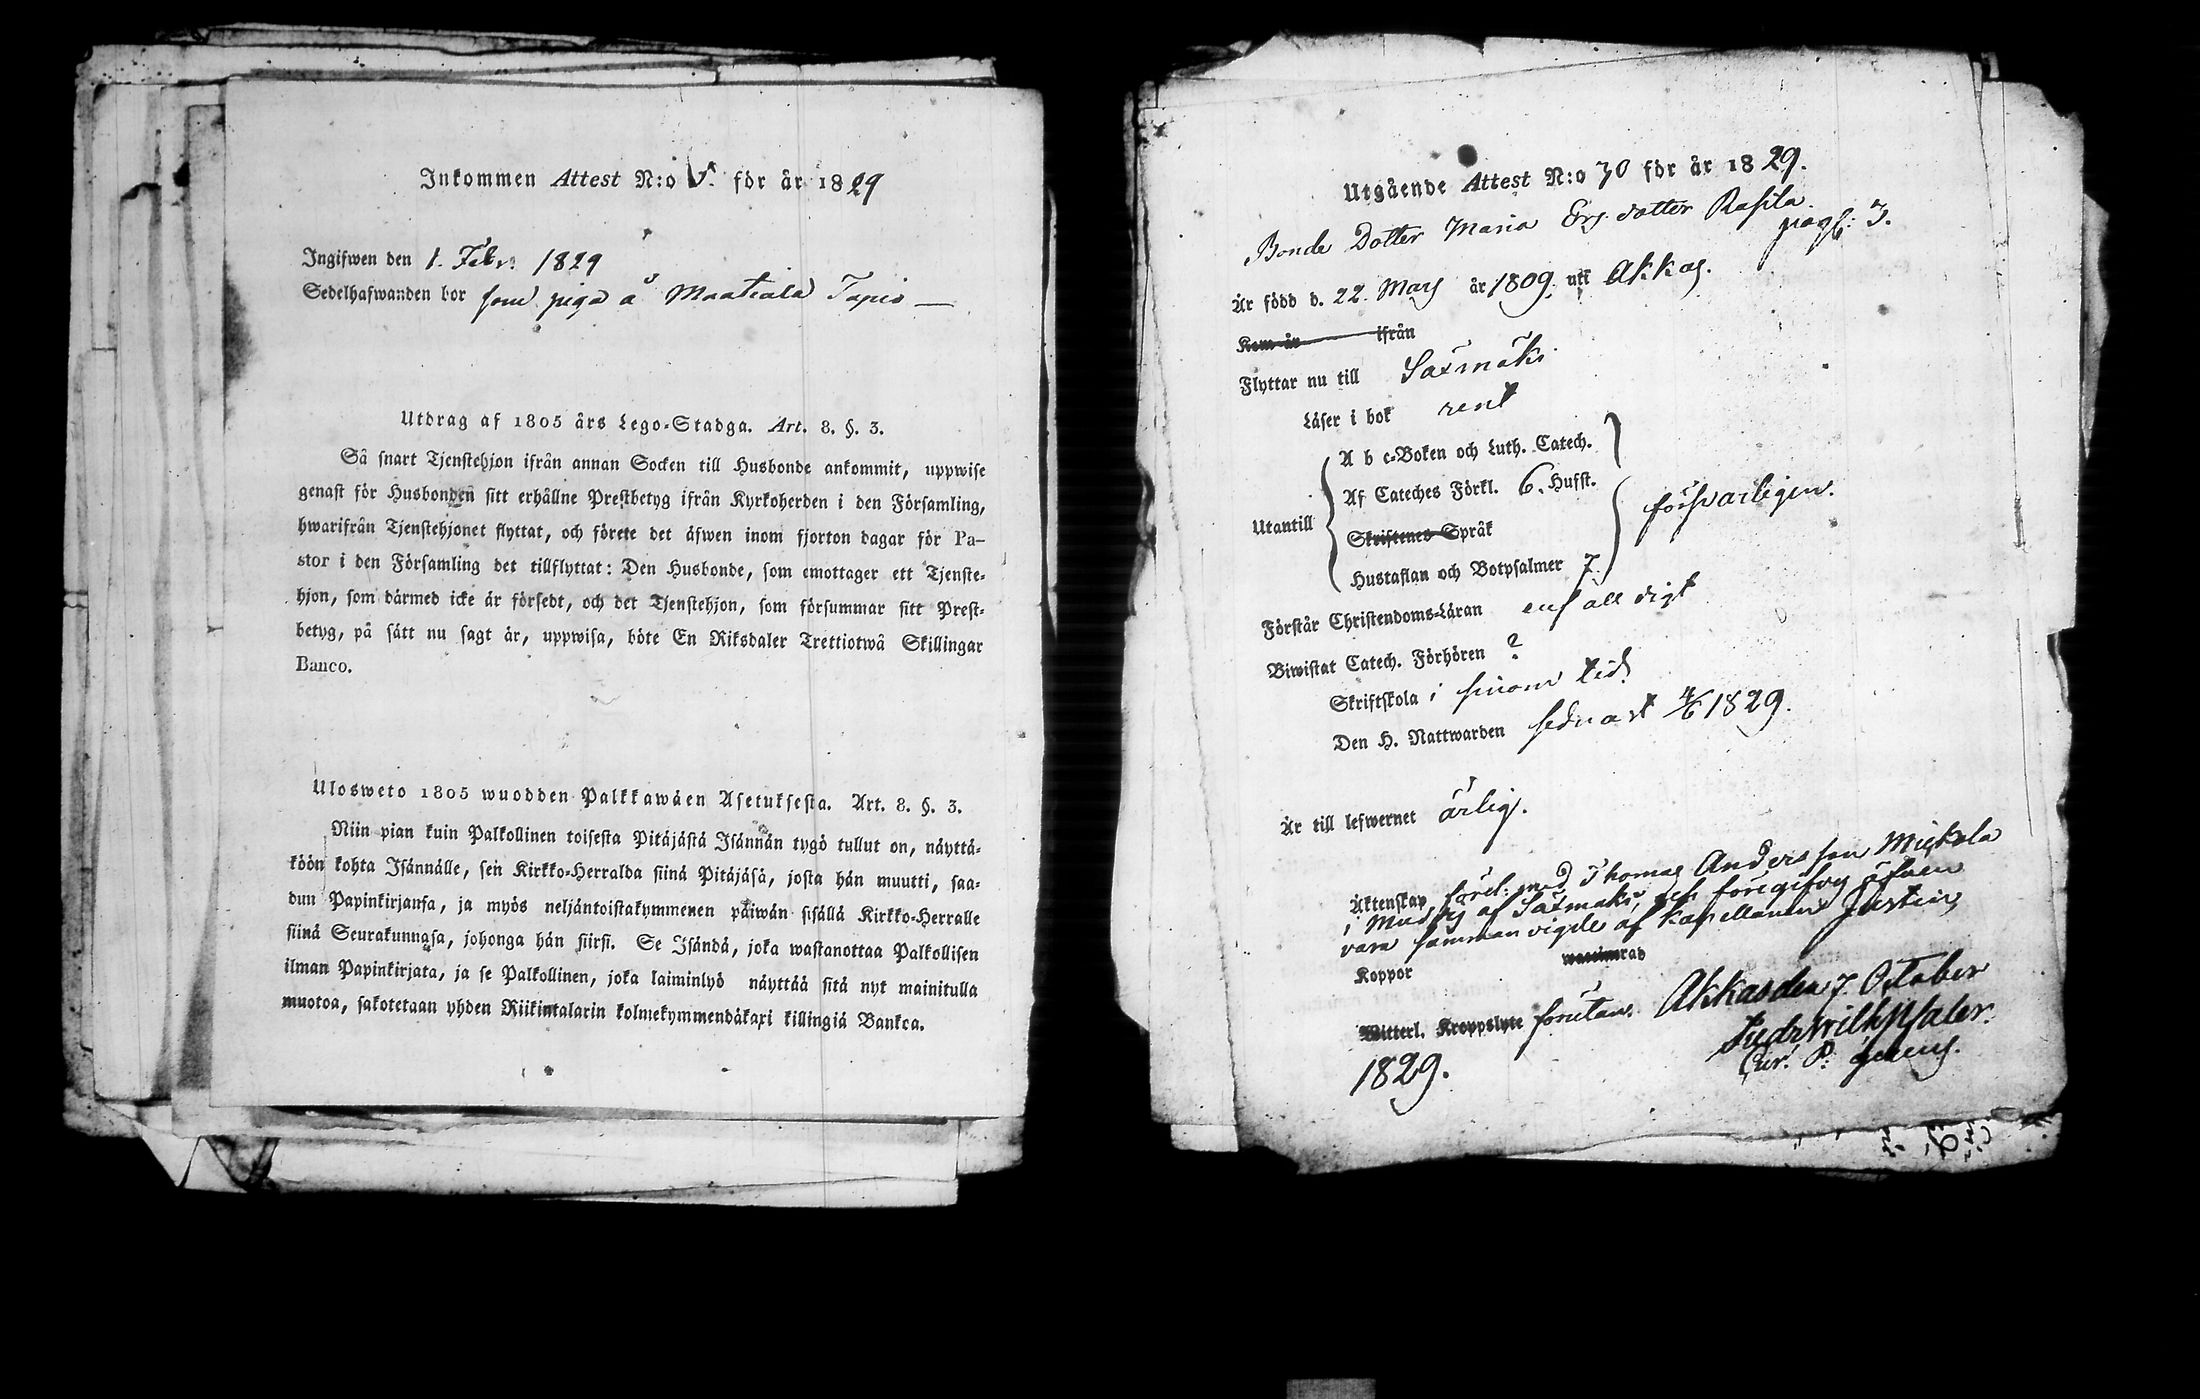 Inkommen Attest N:o för år 1829
Ingifwen den 1. Febr. 1829
Sedelhafwanden bor som piga å Maatiala Tapio —
Utdrag af 1805 års Lego-Stadga. Art. 8. §. 3.
Så snart Tjenstehjon ifrån annan Socken till Husbonde ankommit, uppwise
genast för Husbonden sitt erhållne Prestbetyg ifrån Kyrkoherden i den Församling,
hwarifrån Tjenstehjonet flyttat, och förete det äfwen inom fjorton dagar för Pa-
stor i den Församling det tillflyttat: Den Husbonde, som emottager ett Tjenste-
hjon, som därmed icke är försedt, och det Tjenstehjon, som försummar sitt Prest-
betyg, på sätt nu sagt är, uppwisa, böte En Riksdaler Trettiotwå Skillingar
Banco.
Ulosweto 1805 wuodden Palkkawäen Asetuksesta. Art. 8. §. 3.
Niin pian kuin Palkollinen toisesta Pitäjästä Isännän tygö tullut on, näyttä-
köön kohta Isännälle, sen Kirkko-Herralda siinä Pitäjäsä, josta hän muutti, saa-
dun Papinkirjansa, ja myös neljäntoistakymmenen päiwän sisällä Kirkko-Herralle
siinä Seurakunnasa, johonga hän siirsi. Se Isändä, joka wastanottaa Palkollisen
ilman Papinkirjata, ja se Palkollinen, joka laiminlyö näyttää sitä nyt mainitulla
muotoa, sakotetaan yhden Riikintalarin kolmekymmendäkaxi killingiä Bankca.
Utgående Attest N:o 70 för år 1829.
Bonde Dotter Maria Ers. dotter Rasila.
pag: 3.
Är född d. 22. Mars år 1809. uti Akkas.
Kom år ifrån
Flyttar nu till Säxmäki
Läser i bok rent
A b c-Boken och Luth. Catech.
Af Cateches Förkl. 6. Hufst.
Utantill försvarligen.
Skriftenes Språk
Hustaflan och Botpsalmer 7.
Förstår Christendoms-Läran enfalldigt
Biwistat Catech. Förhören ?
Skriftskola i sinom tid.
Den H. Nattwarden sednast 4/6 1829.
Är till lefwernet ärlig.
Äktenskap förel: med Thomas Andersson Mickola
i Mudby af Säxmäki och föregifves äfven
vara samman vigde af kapellanen Justin
Koppor waccinerad
Witterl. Kroppslyte förutan. Akkas den 7. October
1829.
Fredr Wilh
Cur. P.